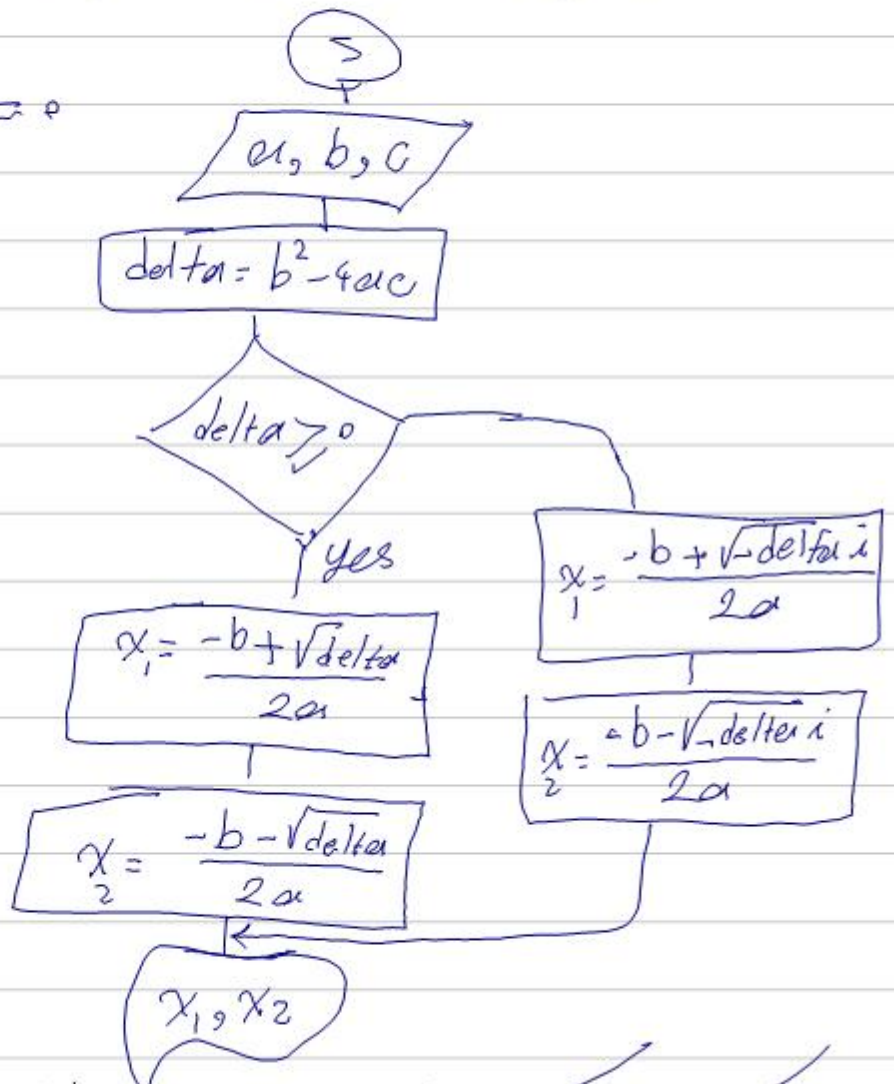 S
= 0
a, b, c
delta = b² - 4ac
delta ≥ 0
yes
x₁ = (-b + √delta) / 2a
x₂ = (-b - √delta) / 2a
x₁ = (-b + √-delta i) / 2a
x₂ = (-b - √-delta i) / 2a
x₁, x₂